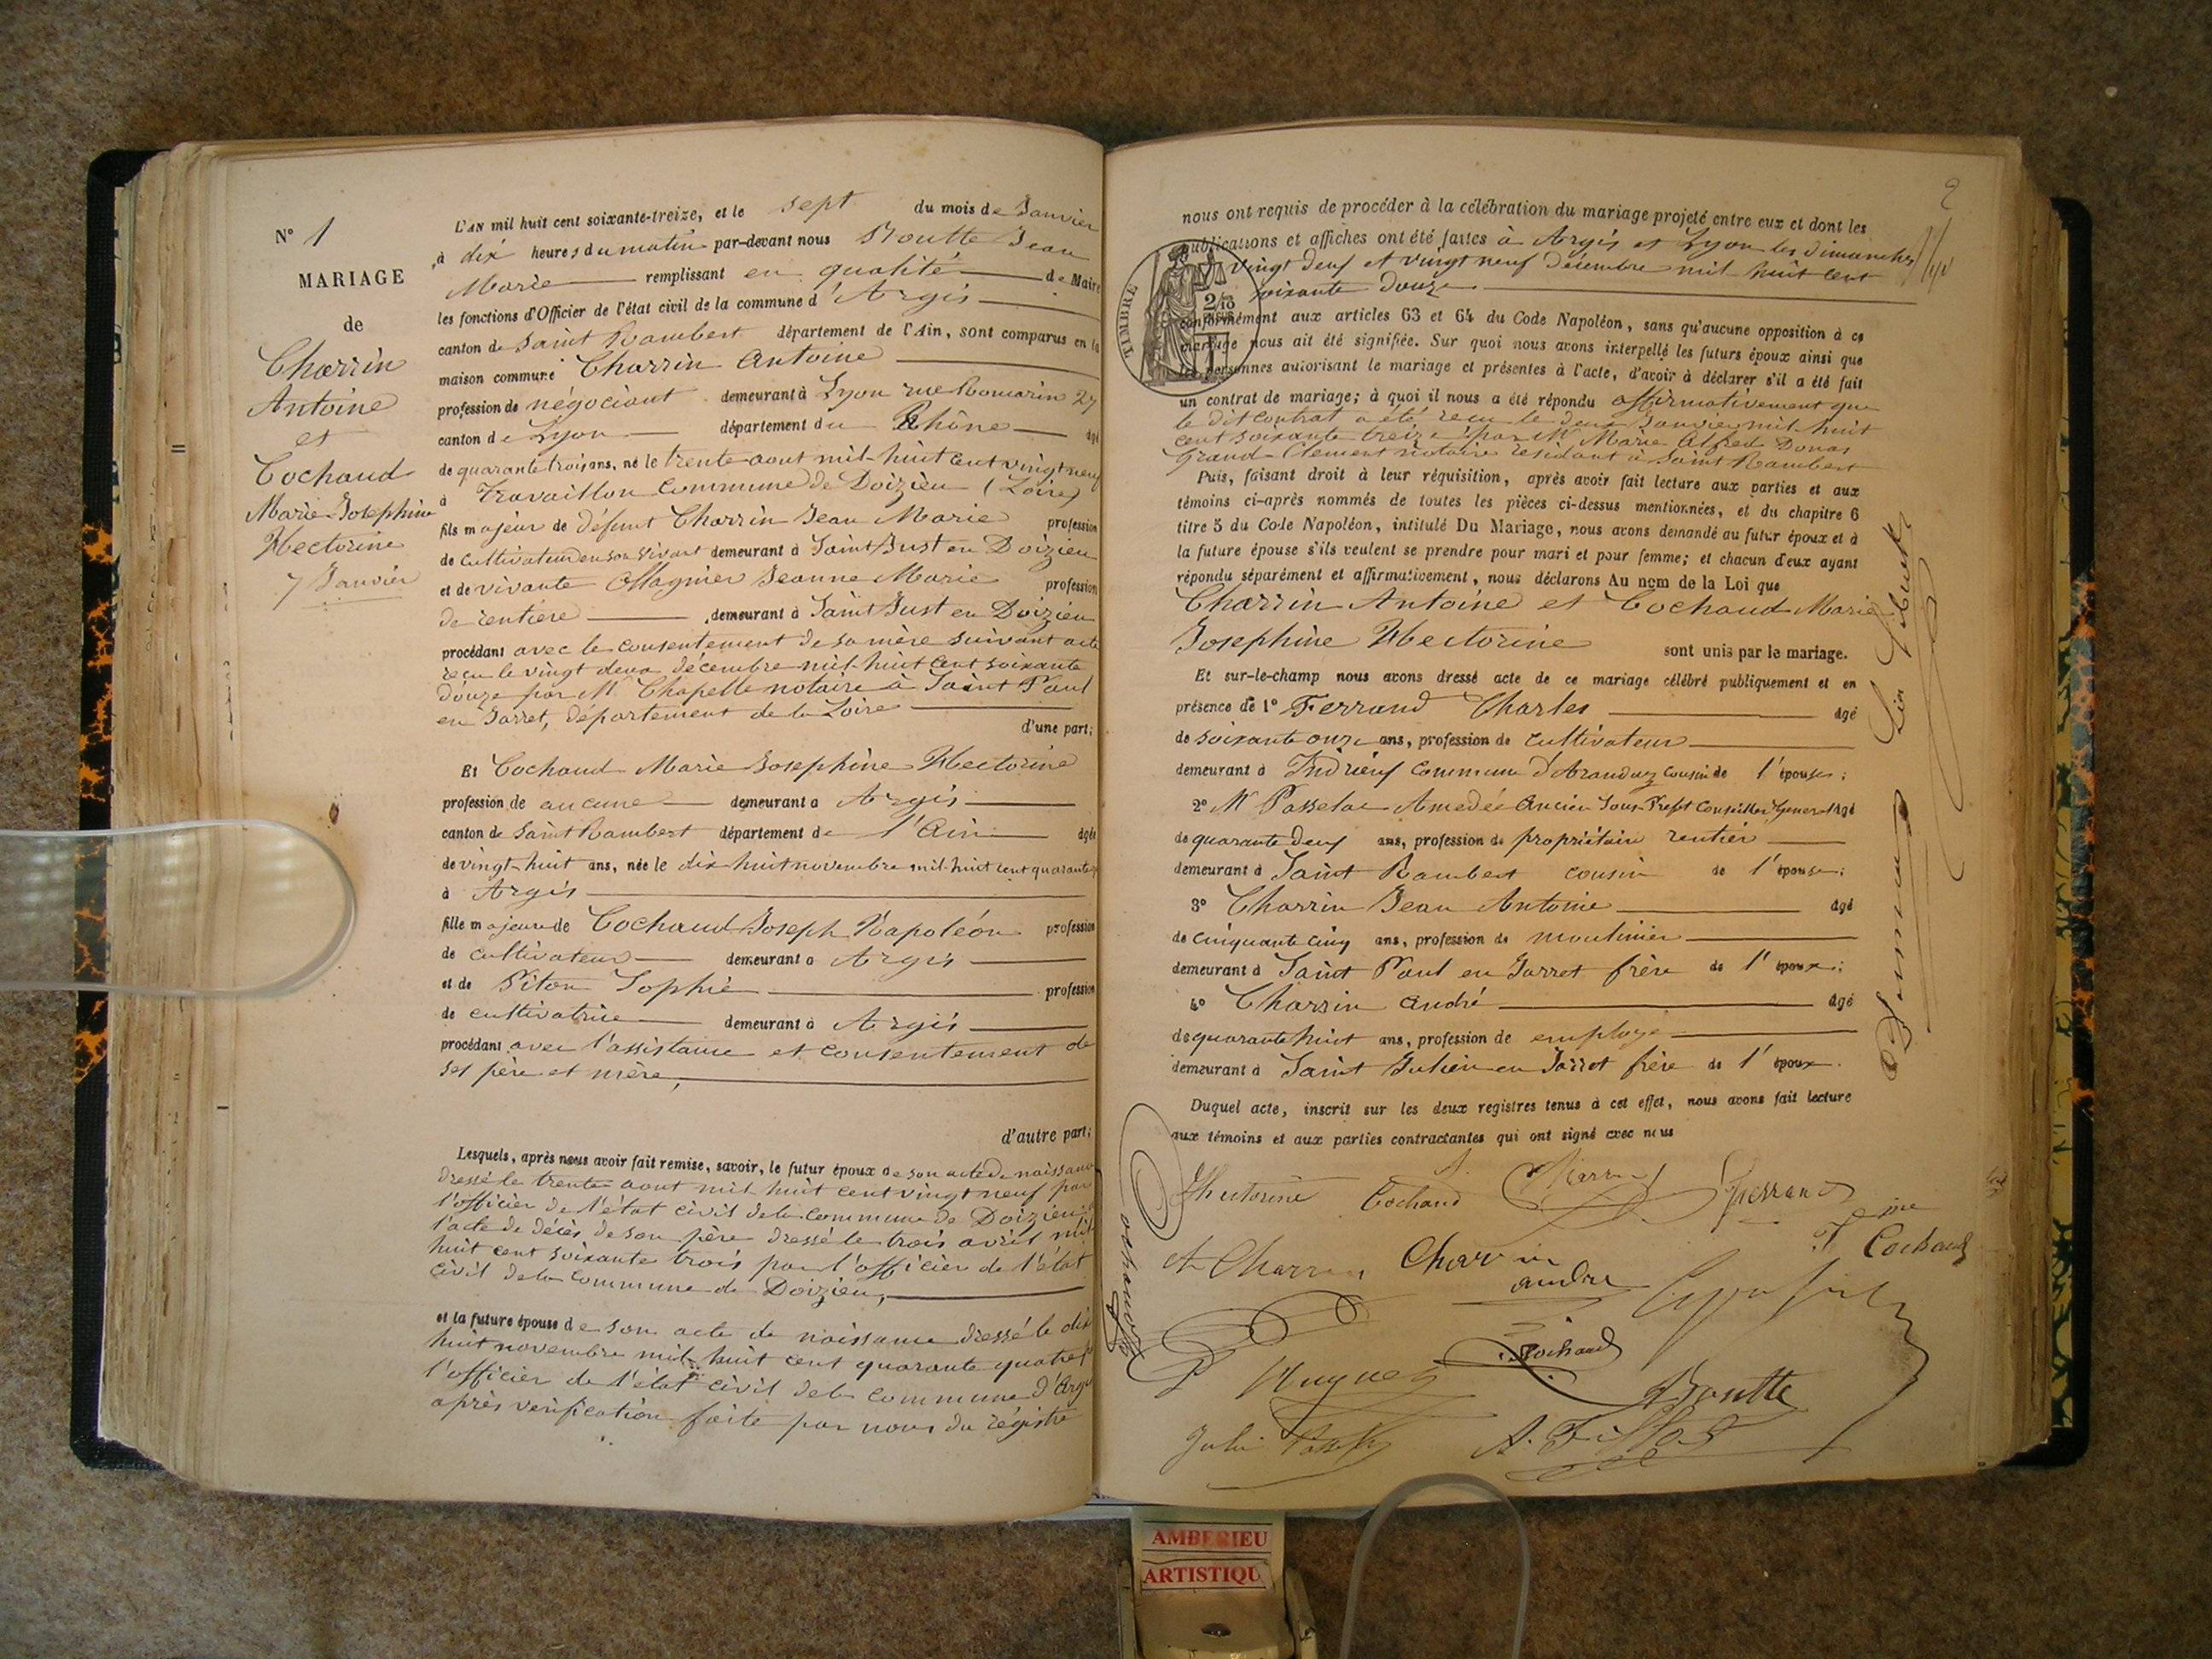 N° 1
MARIAGE
de
Charrin
Antoine
et
Cochaud
Marie Josephine
Hectorine
7 Janvier
L'AN mil huit cent soixante-treize, et le sept du mois de Janvier
à dix heures du matin par-devant nous Boutte Jean
Marie remplissant en qualité de Maire
les fonctions d'Officier de l'état civil de la commune d'Argis
canton de Saint Rambert département de l'Ain, sont comparus en la
maison commune Charrin Antoine
profession de négociant demeurant à Lyon rue Romarin 27
canton de Lyon département du Rhône âgé
de quarante trois ans, né le trente aout mil huit cent vingt neuf
à Travaillon commune de Doizieu (Loire)
fils majeur de défunt Charrin Jean Marie profession
de cultivateur en son vivant demeurant à Saint Just en Doizieu
et de vivante Ollagnier Jeanne Marie profession
de rentiere demeurant à Saint Just en Doizieu
procédant avec le consentement de sa mère suivant acte
reçu le vingt deux décembre mil huit cent soixante
douze par M. Chapelle notaire à Saint Paul
en Jarret, département de la Loire
d'une part;
Et Cochaud Marie Josephine Hectorine
profession de aucune demeurant à Argis
canton de Saint Rambert département de l'Ain âgée
de vingt-huit ans, née le dix huit novembre mil huit cent quarante
à Argis
fille majeure de Cochaud Joseph Napoléon profession
de cultivateur demeurant à Argis
et de Piton Sophie profession
de cultivatrice demeurant à Argis
procédant avec l'assistance et consentement de
ses père et mère,
d'autre part;
Lesquels, après nous avoir fait remise, savoir, le futur époux de son acte de naissance
dressé le trente aout mil huit cent vingt neuf par
l'officier de l'état civil de la commune de Doizieu
l'acte de décès de son père dressé le trois avril mil
huit cent soixante trois par l'officier de l'état
civil de la commune de Doizieu,
et la future épouse de son acte de naissance dressé le dix
huit novembre mil huit cent quarante quatre
l'officier de l'état civil de la commune d'Argis
après vérification faite par nous du régistre
2
nous ont requis de procéder à la célébration du mariage projeté entre eux et dont les
publications et affiches ont été faites à Argis et Lyon les dimanches
vingt deux et vingt neuf décembre mil huit cent
soixante douze
TIMBRE
conformément aux articles 63 et 64 du Code Napoléon, sans qu'aucune opposition à ce
mariage nous ait été signifiée. Sur quoi nous avons interpellé les futurs époux ainsi que
les personnes autorisant le mariage et présentes à l'acte, d'avoir à déclarer s'il a été fait
un contrat de mariage; à quoi il nous a été répondu affirmativement que
le dit contrat a été reçu le deux Janvier mil huit
cent soixante treize par Mr Marie Alfred Donas
Grand-Clement notaire résidant à Saint Rambert
Puis, faisant droit à leur réquisition, après avoir fait lecture aux parties et aux
témoins ci-après nommés de toutes les pièces ci-dessus mentionnées, et du chapitre 6
titre 5 du Code Napoléon, intitulé Du Mariage, nous avons demandé au futur époux et à
la future épouse s'ils veulent se prendre pour mari et pour femme; et chacun d'eux ayant
répondu séparément et affirmativement, nous déclarons Au nom de la Loi que
Charrin Antoine et Cochaud Marie
Josephine Hectorine sont unis par le mariage.
Et sur-le-champ nous avons dressé acte de ce mariage célébré publiquement et en
présence de 1° Ferrand Charles âgé
de soixante onze ans, profession de cultivateur
demeurant à Indrieux commune d'Aranduz cousin de l'épouse;
2° Mr Passelac Amedée ancien Sous Prefet Conseiller Géneral âgé
de quarante deux ans, profession de propriétaire rentier
demeurant à Saint Rambert cousin de l'épouse;
3° Charrin Jean Antoine âgé
de cinquante cinq ans, profession de moulinier
demeurant à Saint Paul en Jarret frère de l'époux;
4° Charrin André âgé
de quarante huit ans, profession de employé
demeurant à Saint Julien en Jarret frère de l'époux.
Duquel acte, inscrit sur les deux registres tenus à cet effet, nous avons fait lecture
aux témoins et aux parties contractantes qui ont signé avec nous
Hectorine Cochaud Charrin Ferrand
J Cochaud
A Charrin Charrin
andre
Cochaud
Hugues Cochaud
Boutte
Julie
AMBERIEU
ARTISTIQU